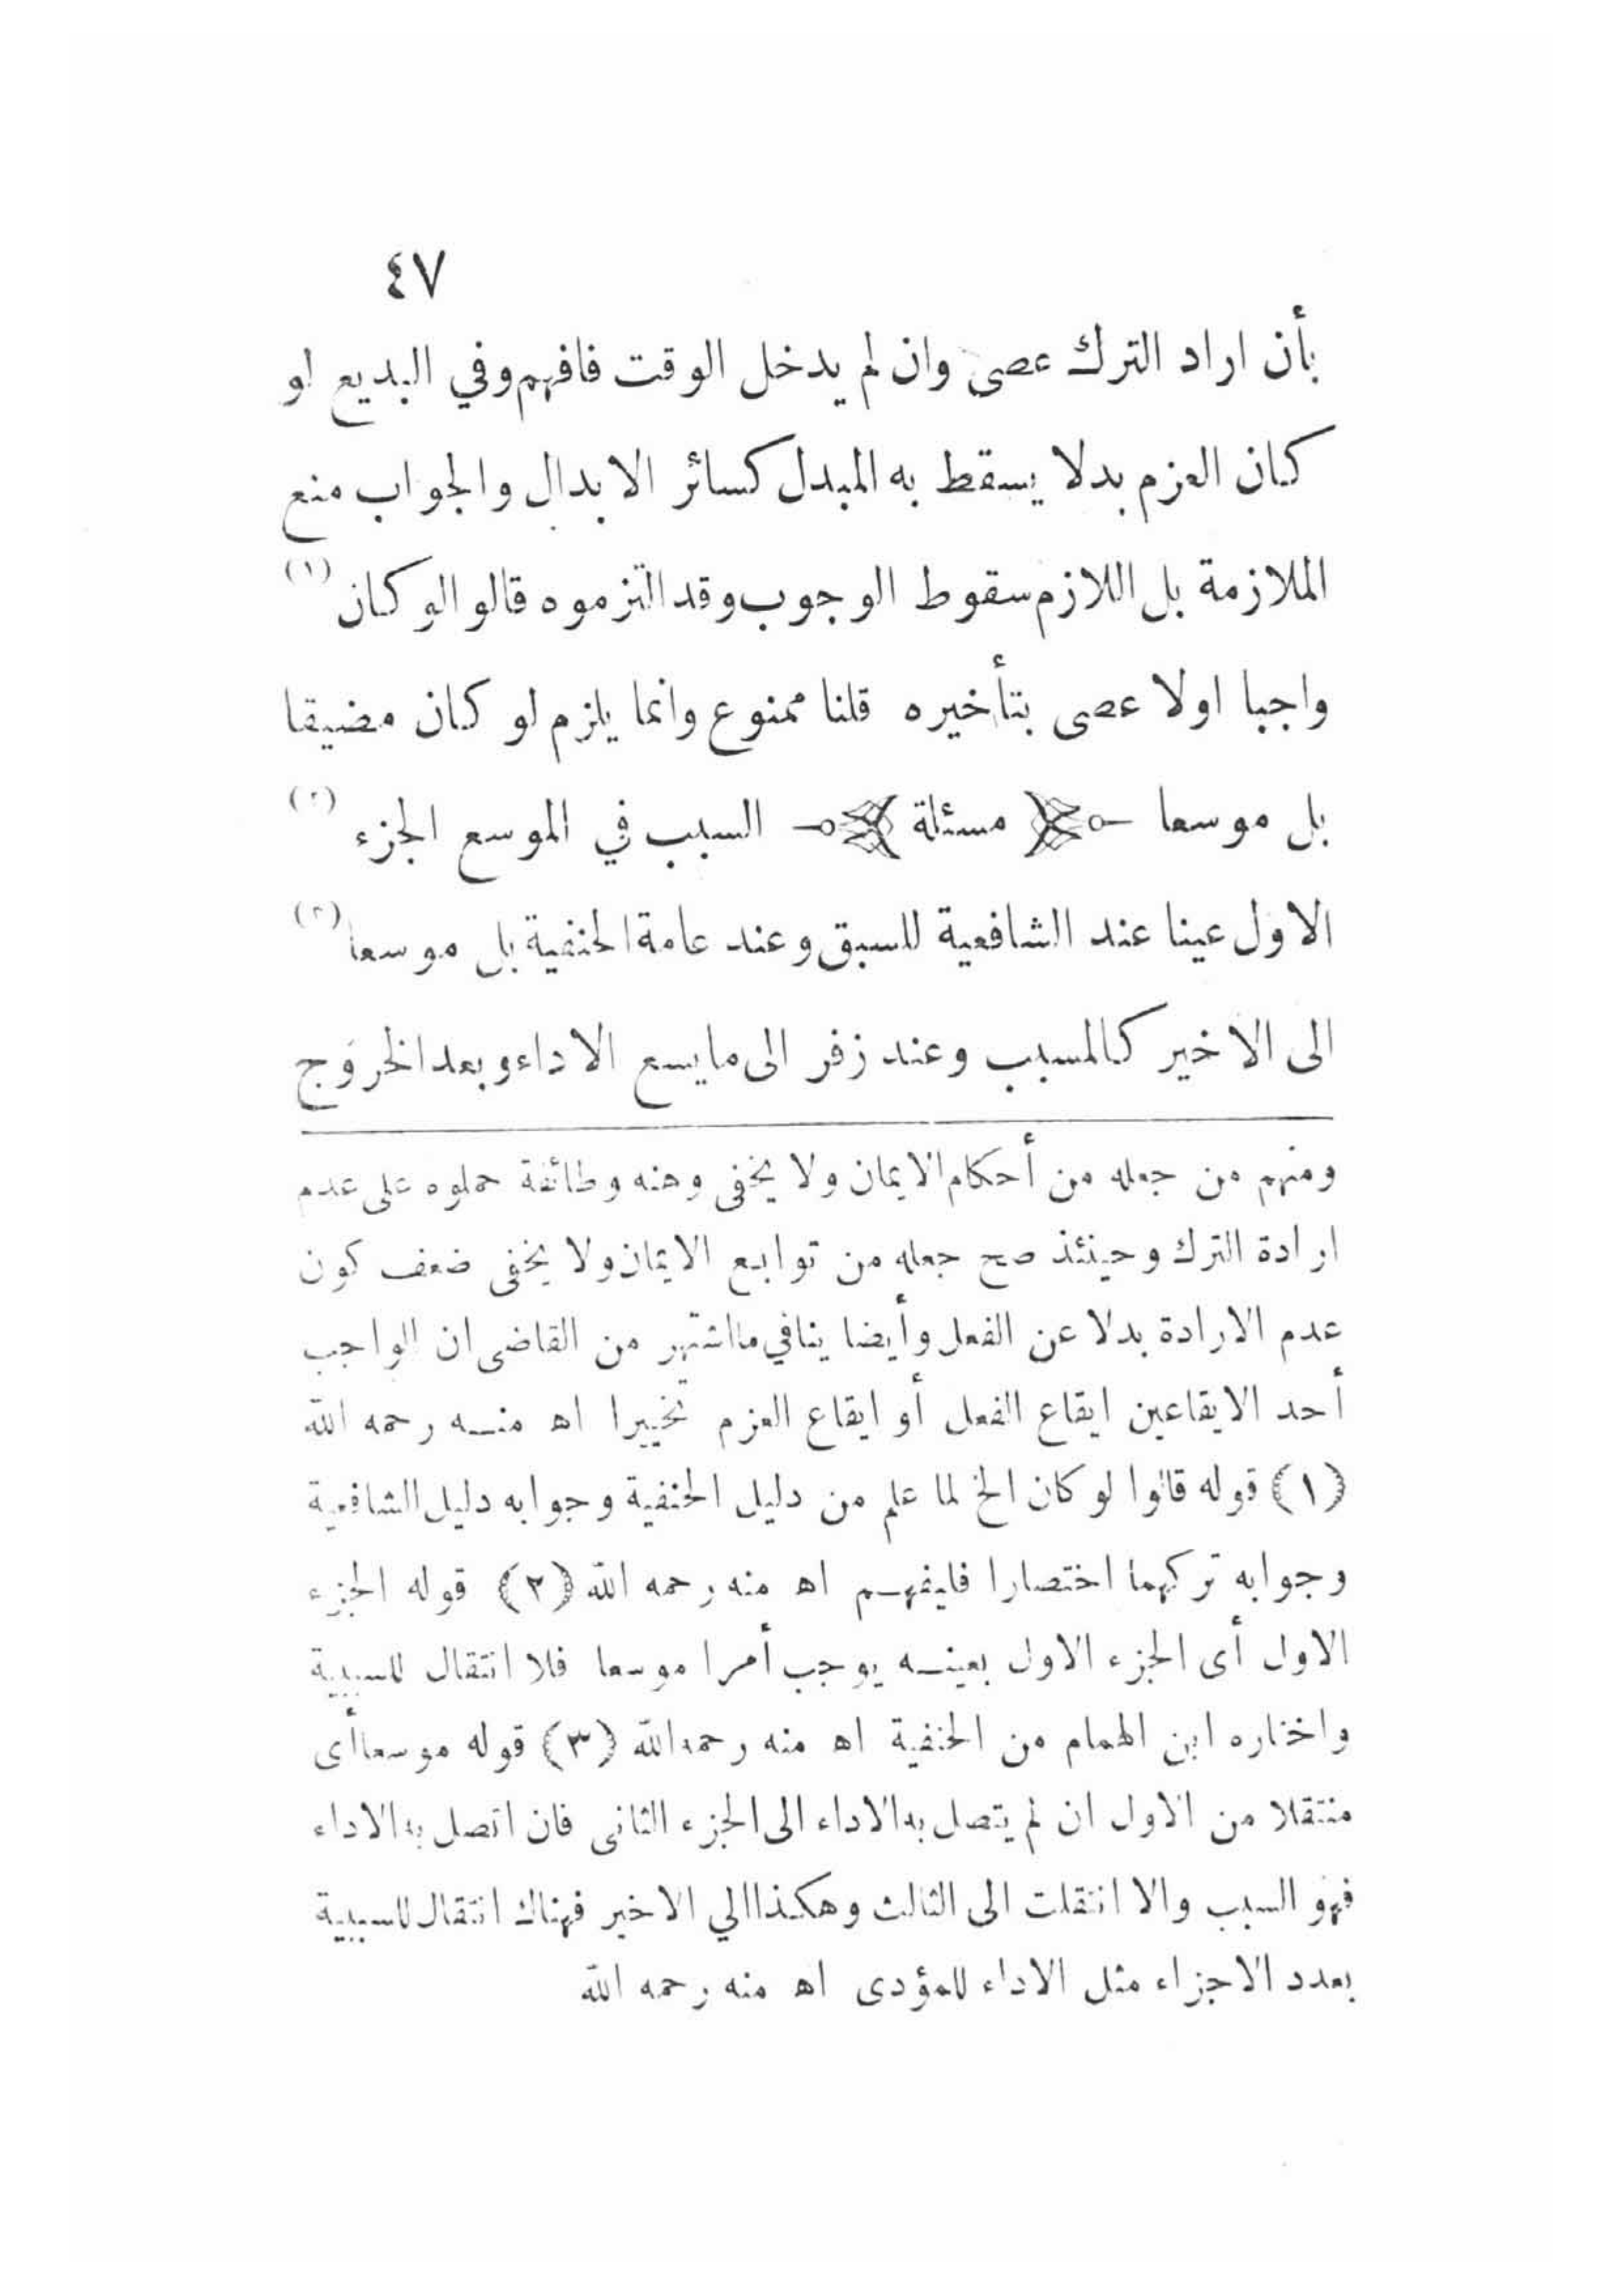 ٤٧
بأن اراد الترك عصى وان لم يدخل الوقت فافهم وفي البديع لو
كان العزم بدلا يسقط به المبدل كسائر الابدال والجواب منع
الملازمة بل اللازم سقوط الوجوب وقد التزموه قالوا لو كان (١)
واجبا اولا عصى بتأخيره قلنا ممنوع وانما يلزم لو كان مضيقا
بل موسعا مسئلة السبب في الموسع الجزء (٢)
الاول عينا عند الشافعية للسبق وعند عامة الحنفية بل موسعا (٣)
الى الاخير كالمسبب وعند زفر الى ما يسع الاداء وبعد الخروج
ومنهم من جعله من أحكام الايمان ولا يخفى وهنه وطائفة حملوه على عدم
ارادة الترك وحينئذ صح جعله من توابع الايمان ولا يخفى ضعف كون
عدم الارادة بدلا عن الفعل وأيضا ينافي ما اشتهر من القاضى ان الواجب
أحد الايقاعين ايقاع الفعل أو ايقاع العزم تخييرا اه منه رحمه الله
(١) قوله قالوا لو كان الخ لما علم من دليل الحنفية وجوابه دليل الشافعية
وجوابه تركهما اختصارا فليفهم اه منه رحمه الله (٢) قوله الجزء
الاول أى الجزء الاول بعينه يوجب أمرا موسعا فلا انتقال للسببية
واختاره ابن الهمام من الحنفية اه منه رحمه الله (٣) قوله موسعا أى
منتقلا من الاول ان لم يتصل به الاداء الى الجزء الثانى فان اتصل به الاداء
فهو السبب والا انتقلت الى الثالث وهكذا الي الاخير فهناك انتقال للسببية
بعدد الاجزاء مثل الاداء للمؤدى اه منه رحمه الله